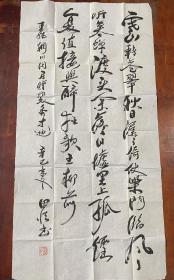 寒山轉蒼翠秋日潺湲倚杖柴門臨風
聽暮蟬渡頭余落日墟里上孤煙
复值接輿醉狂歌五柳前
王維輞川閑居贈裴秀才迪 辛巳